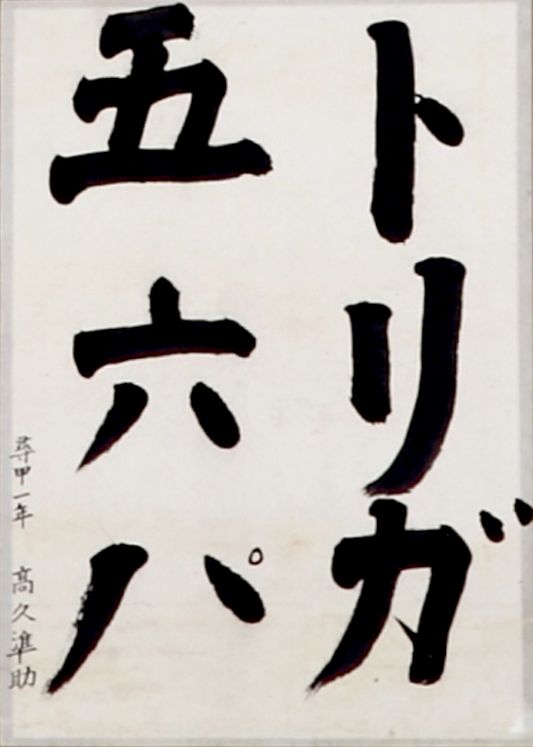 トリガ
五六パ
尋甲一年 高久準助